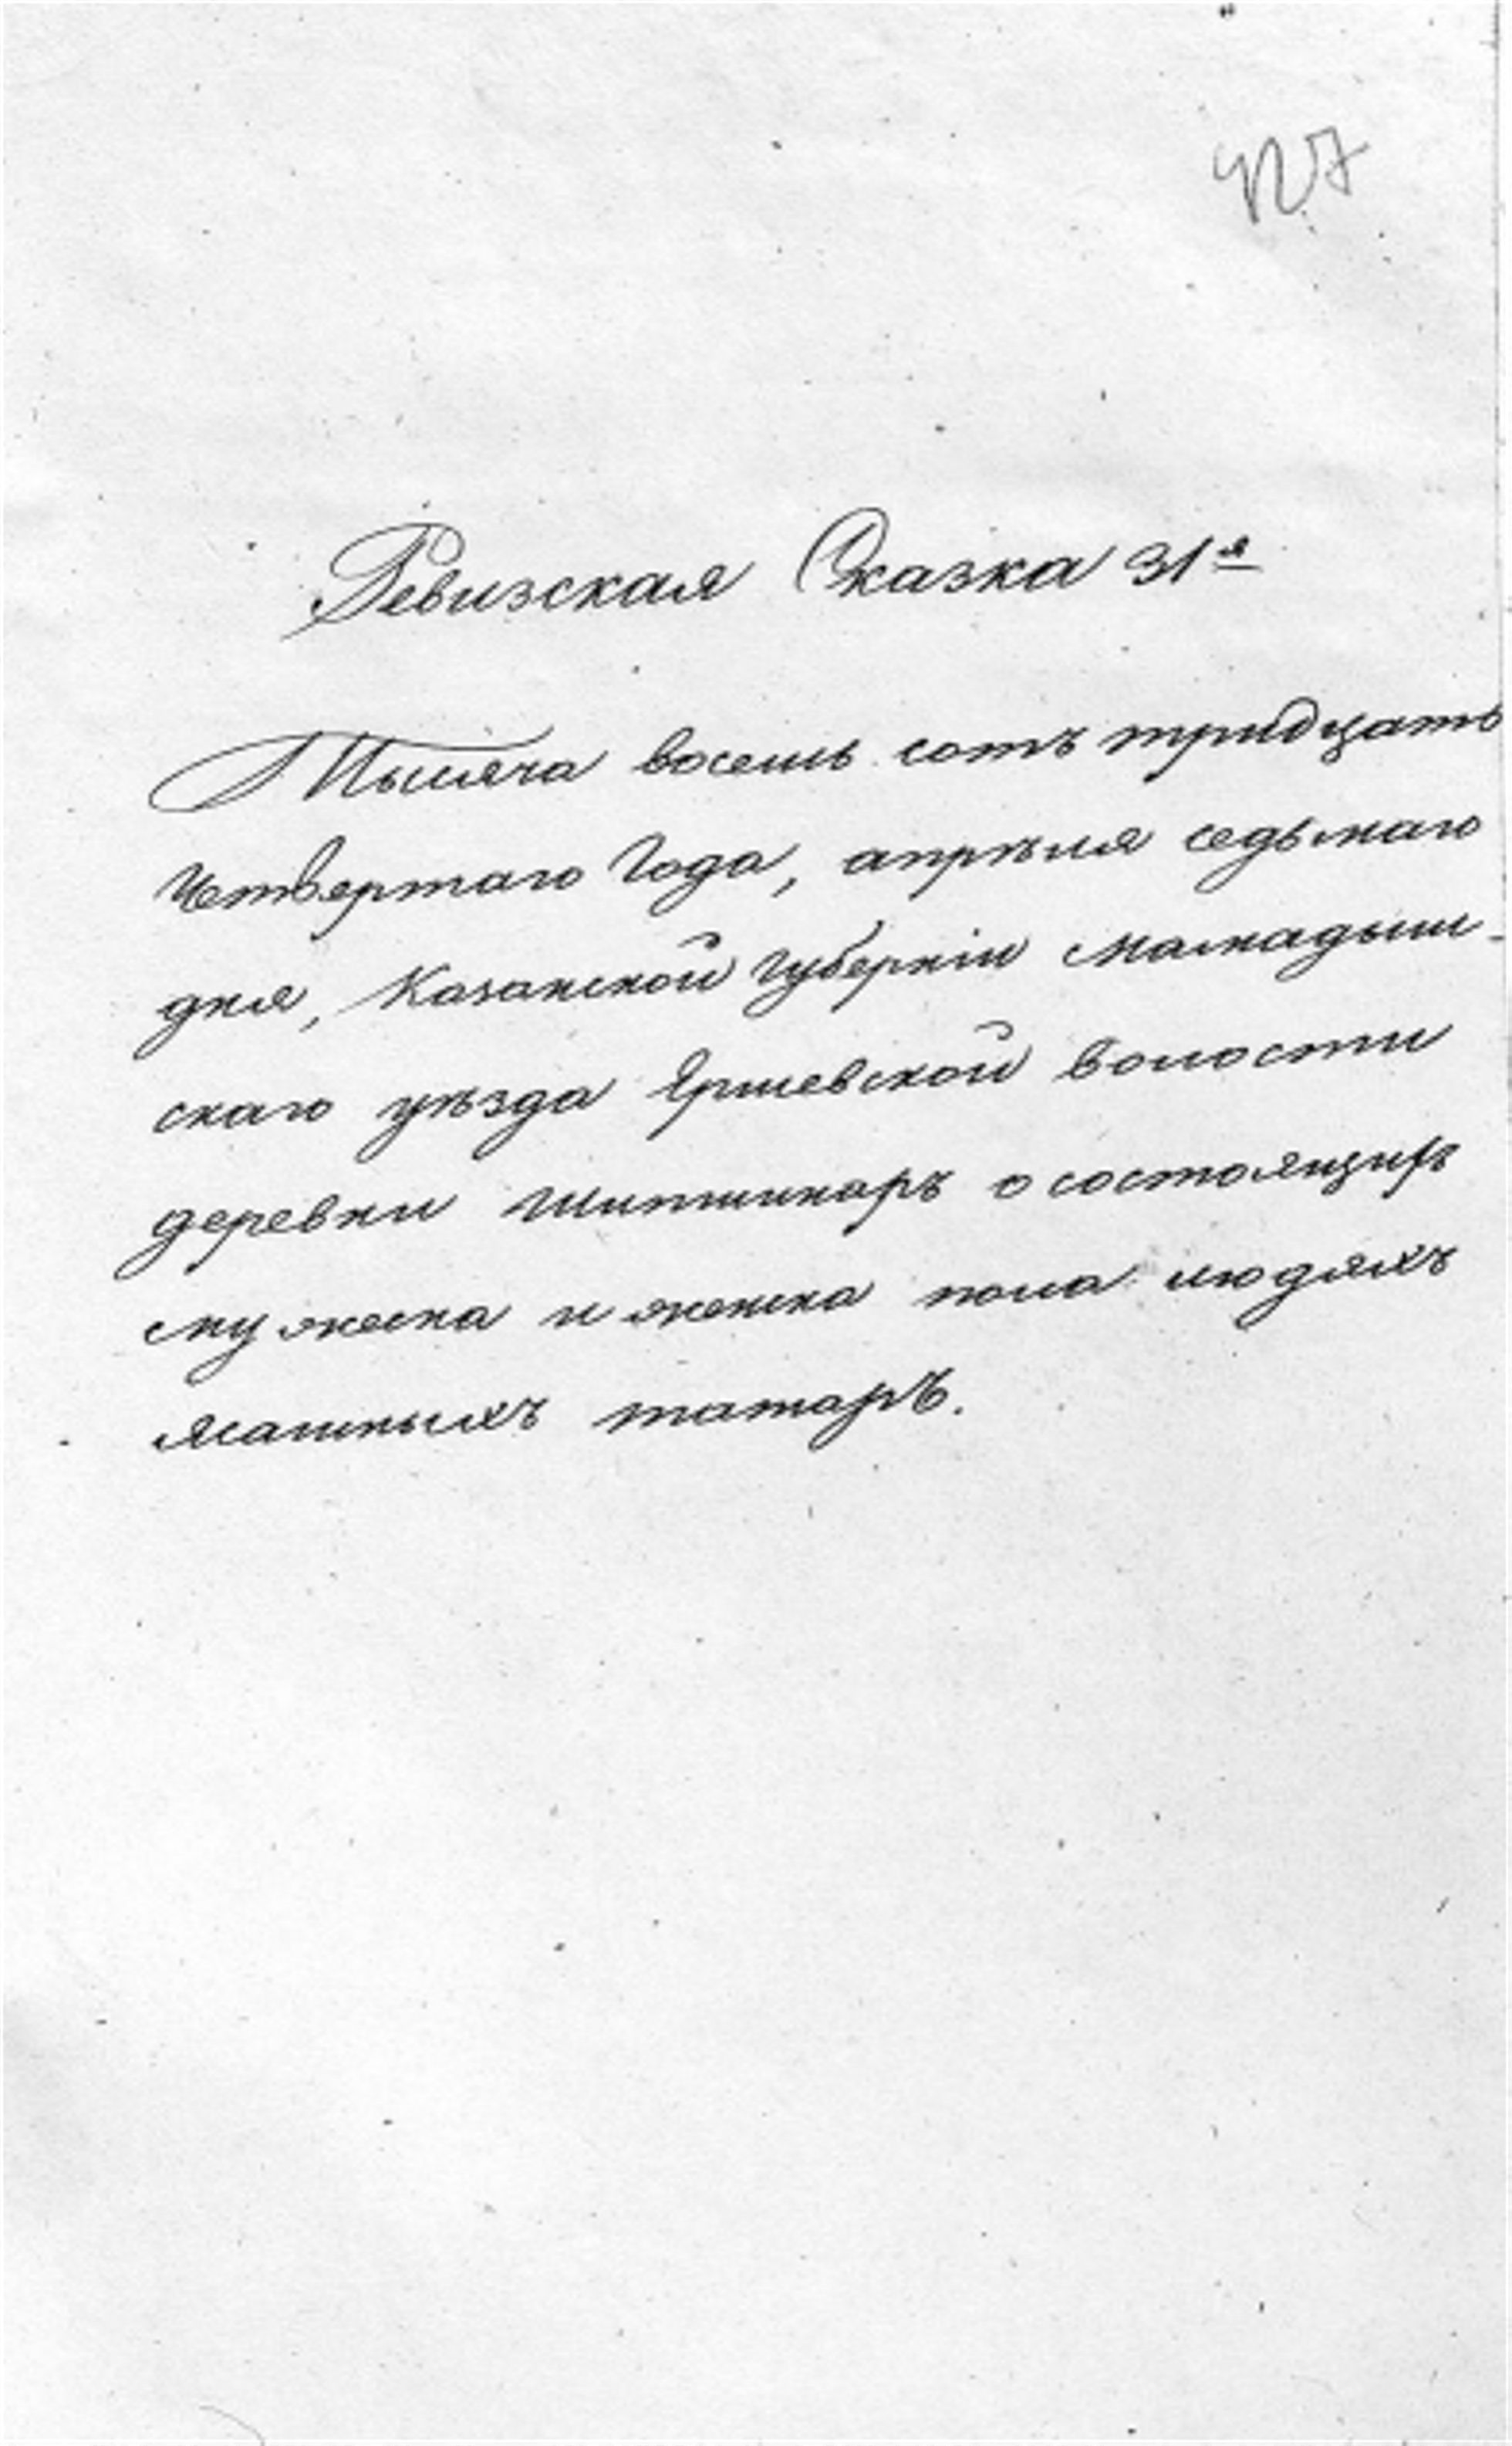 427
Ревизская Сказка 31я
Тысяча восемь сотъ тридцать
Четвертаго Года, апрѣля седьмаго
дня, Казанской Губерніи Мамадыш-
скаго уѣзда Яршевской волости
деревни Шипшинаръ о состоящихъ
мужеска и женска пола людяхъ
ясашныхъ татаръ.